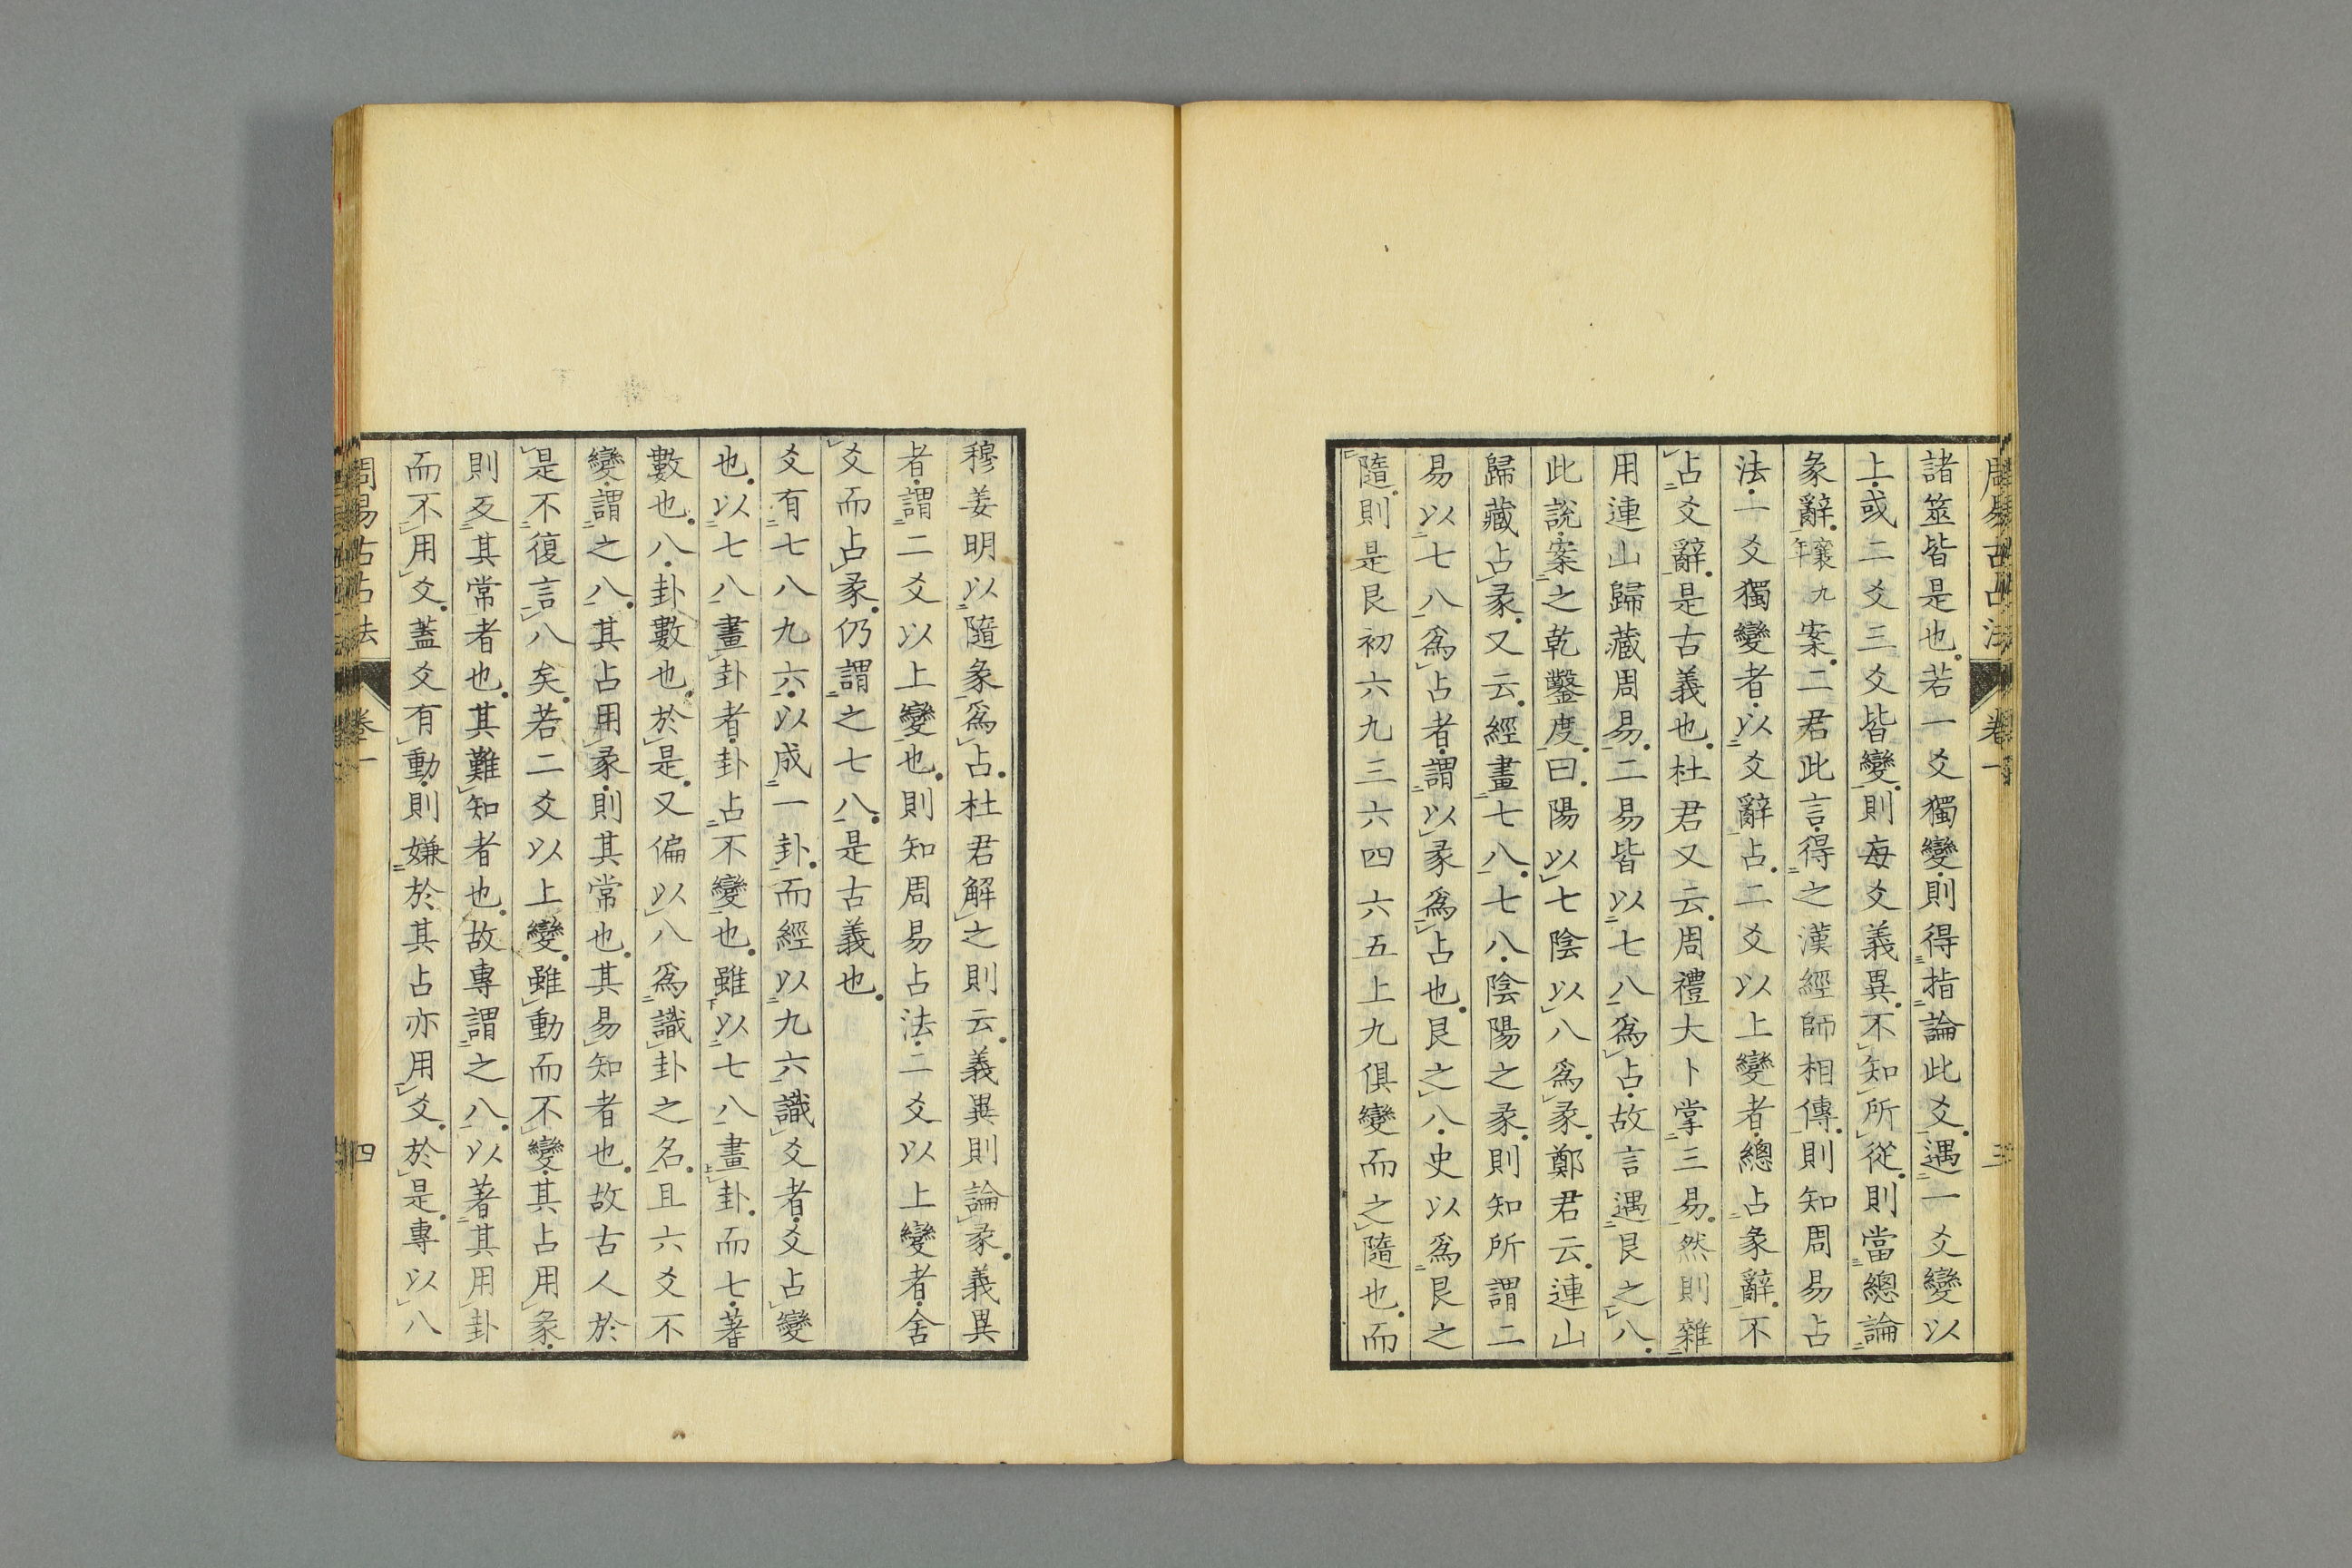 周易古占法 卷一 三
諸筮皆是也若一爻獨變則得指論此爻遇一爻變以
上或二爻三爻皆變則每爻義異不知所從則當總論
彖辭襄九年案二君此言得之漢經師相傳則知周易占
法一爻獨變者以爻辭占二爻以上變者總占彖辭不
占爻辭是古義也杜君又云周禮大卜掌三易然則雜
用連山歸藏周易二易皆以七八爲占故言遇艮之八
此說案之乾鑿度曰陽以七陰以八爲彖鄭君云連山
歸藏占彖又云經畫七八七八陰陽之彖則知所謂二
易以七八爲占者謂以彖爲占也艮之八史以爲艮之
隨則是艮初六九三六四六五上九俱變而之隨也而
穆姜明以隨彖爲占杜君解之則云義異則論彖義異
者謂二爻以上變也則知周易占法二爻以上變者舍
爻而占彖仍謂之七八是古義也
爻有七八九六以成一卦而經以九六識爻者爻占變
也以七八畫卦者卦占不變也雖以七八畫卦而七蓍
數也八卦數也於是又偏以八爲識卦之名且六爻不
變謂之八其占用彖則其常也其易知者也故古人於
是不復言八矣若二爻以上變雖動而不變其占用彖
則反其常者也其難知者也故專謂之八以著其用卦
而不用爻蓋爻有動則嫌於其占亦用爻於是專以八
周易古占法 卷一 四